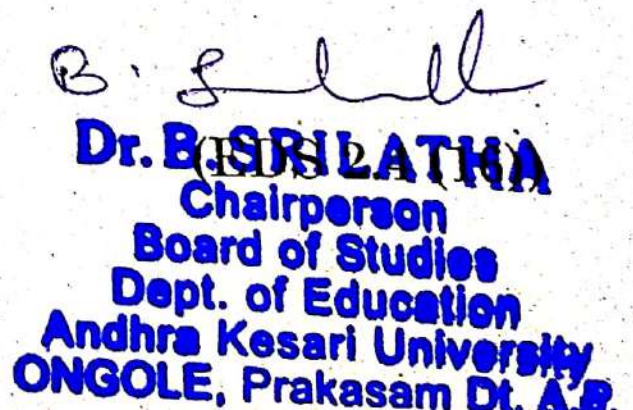 B. Srilatha
Dr. B. SRILATHA
(EDS 2.4 (16))
Chairperson
Board of Studies
Dept. of Education
Andhra Kesari University
ONGOLE, Prakasam Dt. A.P.